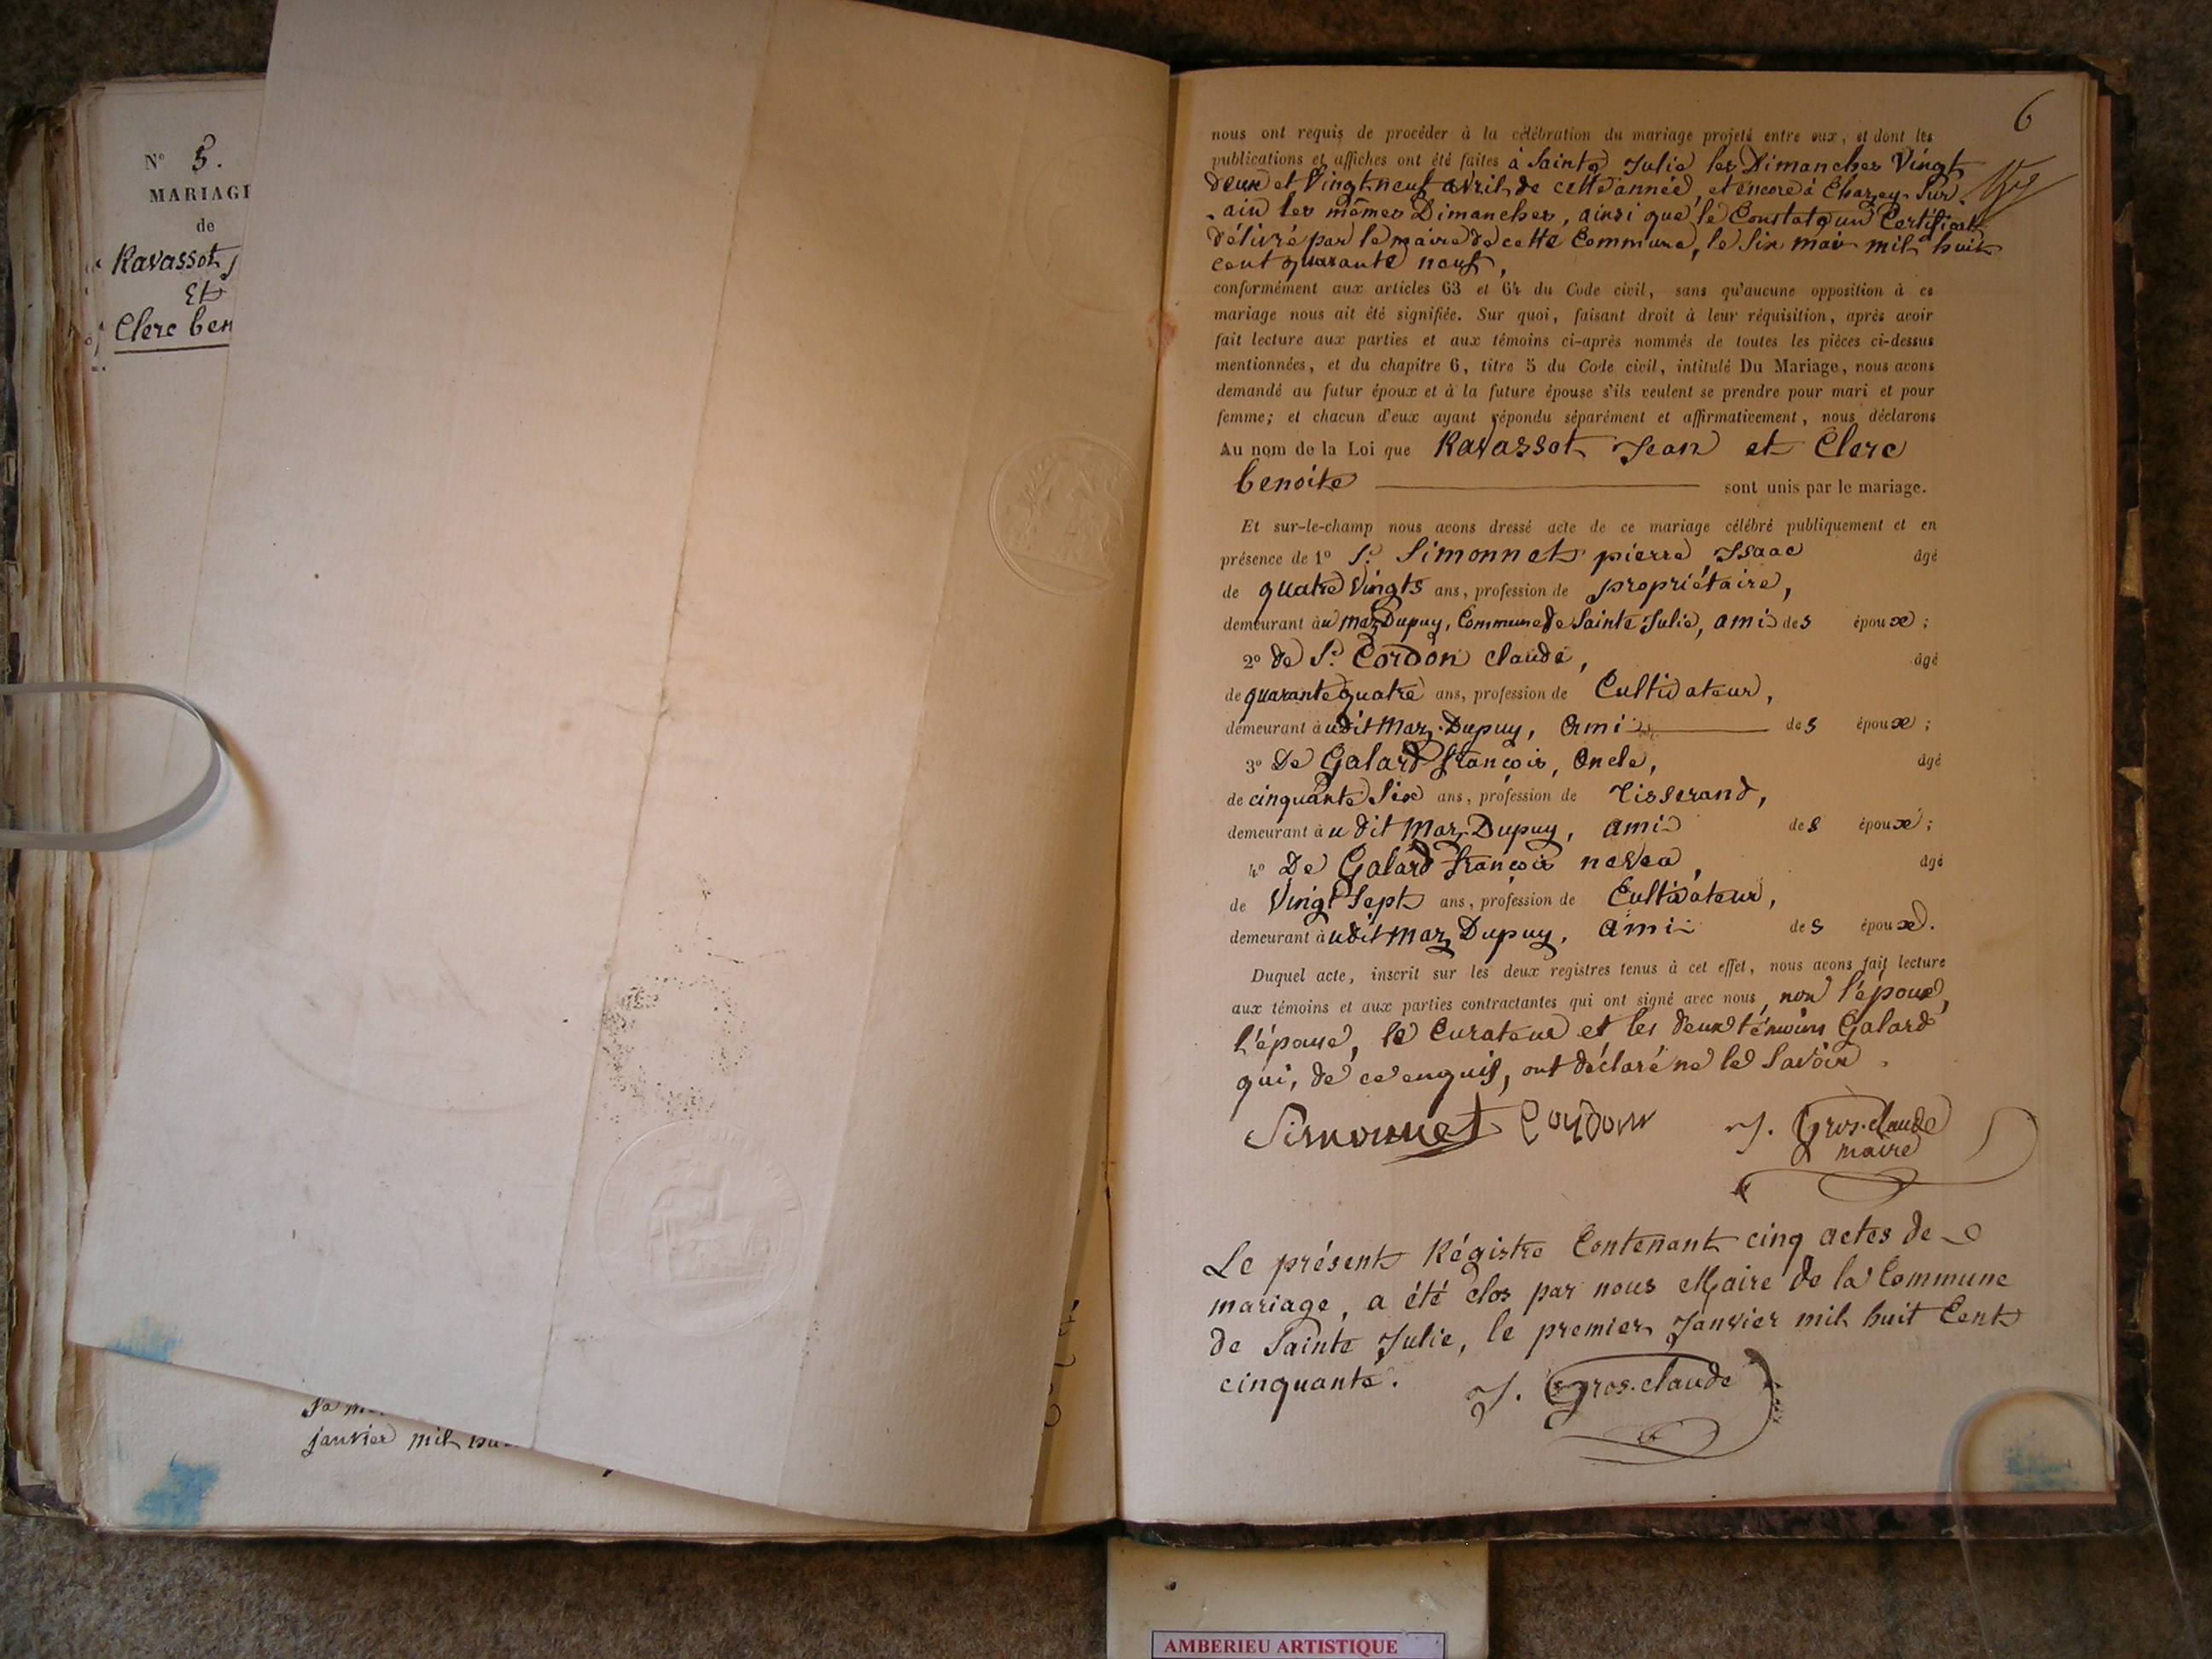 N° 5.
MARIAGE
de
Ravassot J
Et
Clerc ben
janvier mil hu
6
nous ont requis de procéder à la célébration du mariage projeté entre eux, et dont les
publications et affiches ont été faites à Sainte Julie les Dimanches Vingt
deux et Vingt neuf avril de cette année, et encore à Charzey-Sur
-ain les mêmes Dimanches, ainsi que le Constate un Certificat
délivré par le maire de cette Commune, le Six mai mil huit
cent quarante neuf,
conformément aux articles 63 et 64 du Code civil, sans qu'aucune opposition à ce
mariage nous ait été signifiée. Sur quoi, faisant droit à leur réquisition, après avoir
fait lecture aux parties et aux témoins ci-après nommés de toutes les pièces ci-dessus
mentionnées, et du chapitre 6, titre 5 du Code civil, intitulé Du Mariage, nous avons
demandé au futur époux et à la future épouse s'ils veulent se prendre pour mari et pour
femme; et chacun d'eux ayant répondu séparément et affirmativement, nous déclarons
Au nom de la Loi que Ravassot Jean et Clerc
benoite sont unis par le mariage.
Et sur-le-champ nous avons dressé acte de ce mariage célébré publiquement et en
présence de 1° Sr. Simonnet pierre Isaac âgé
de quatre Vingts ans, profession de propriétaire,
demeurant au marz Dupuy, Commune de Sainte Julie, ami des époux;
2° de Sr. Cordon claude, âgé
de quarante quatre ans, profession de Cultivateur,
demeurant audit Marz Dupuy, ami des époux;
3° De Galard françois, Oncle, âgé
de cinquante Six ans, profession de Tisserand,
demeurant au dit Marz Dupuy, ami des époux;
4° De Galard françois neveu, âgé
de Vingt Sept ans, profession de Cultivateur,
demeurant audit Marz Dupuy, ami des époux.
Duquel acte, inscrit sur les deux registres tenus à cet effet, nous avons fait lecture
aux témoins et aux parties contractantes qui ont signé avec nous, non l'époux,
l'épouse, le Curateur et les deux témoins Galard
qui, de ce enquis, ont déclaré ne le Savoir.
Simonnet Cordon J. Gros.claude
maire
Le présent Régistre Contenant cinq actes de
mariage, a été clos par nous Maire de la Commune
de Sainte Julie, le premier Janvier mil huit Cent
cinquante. J. Gros.claude
AMBERIEU ARTISTIQUE